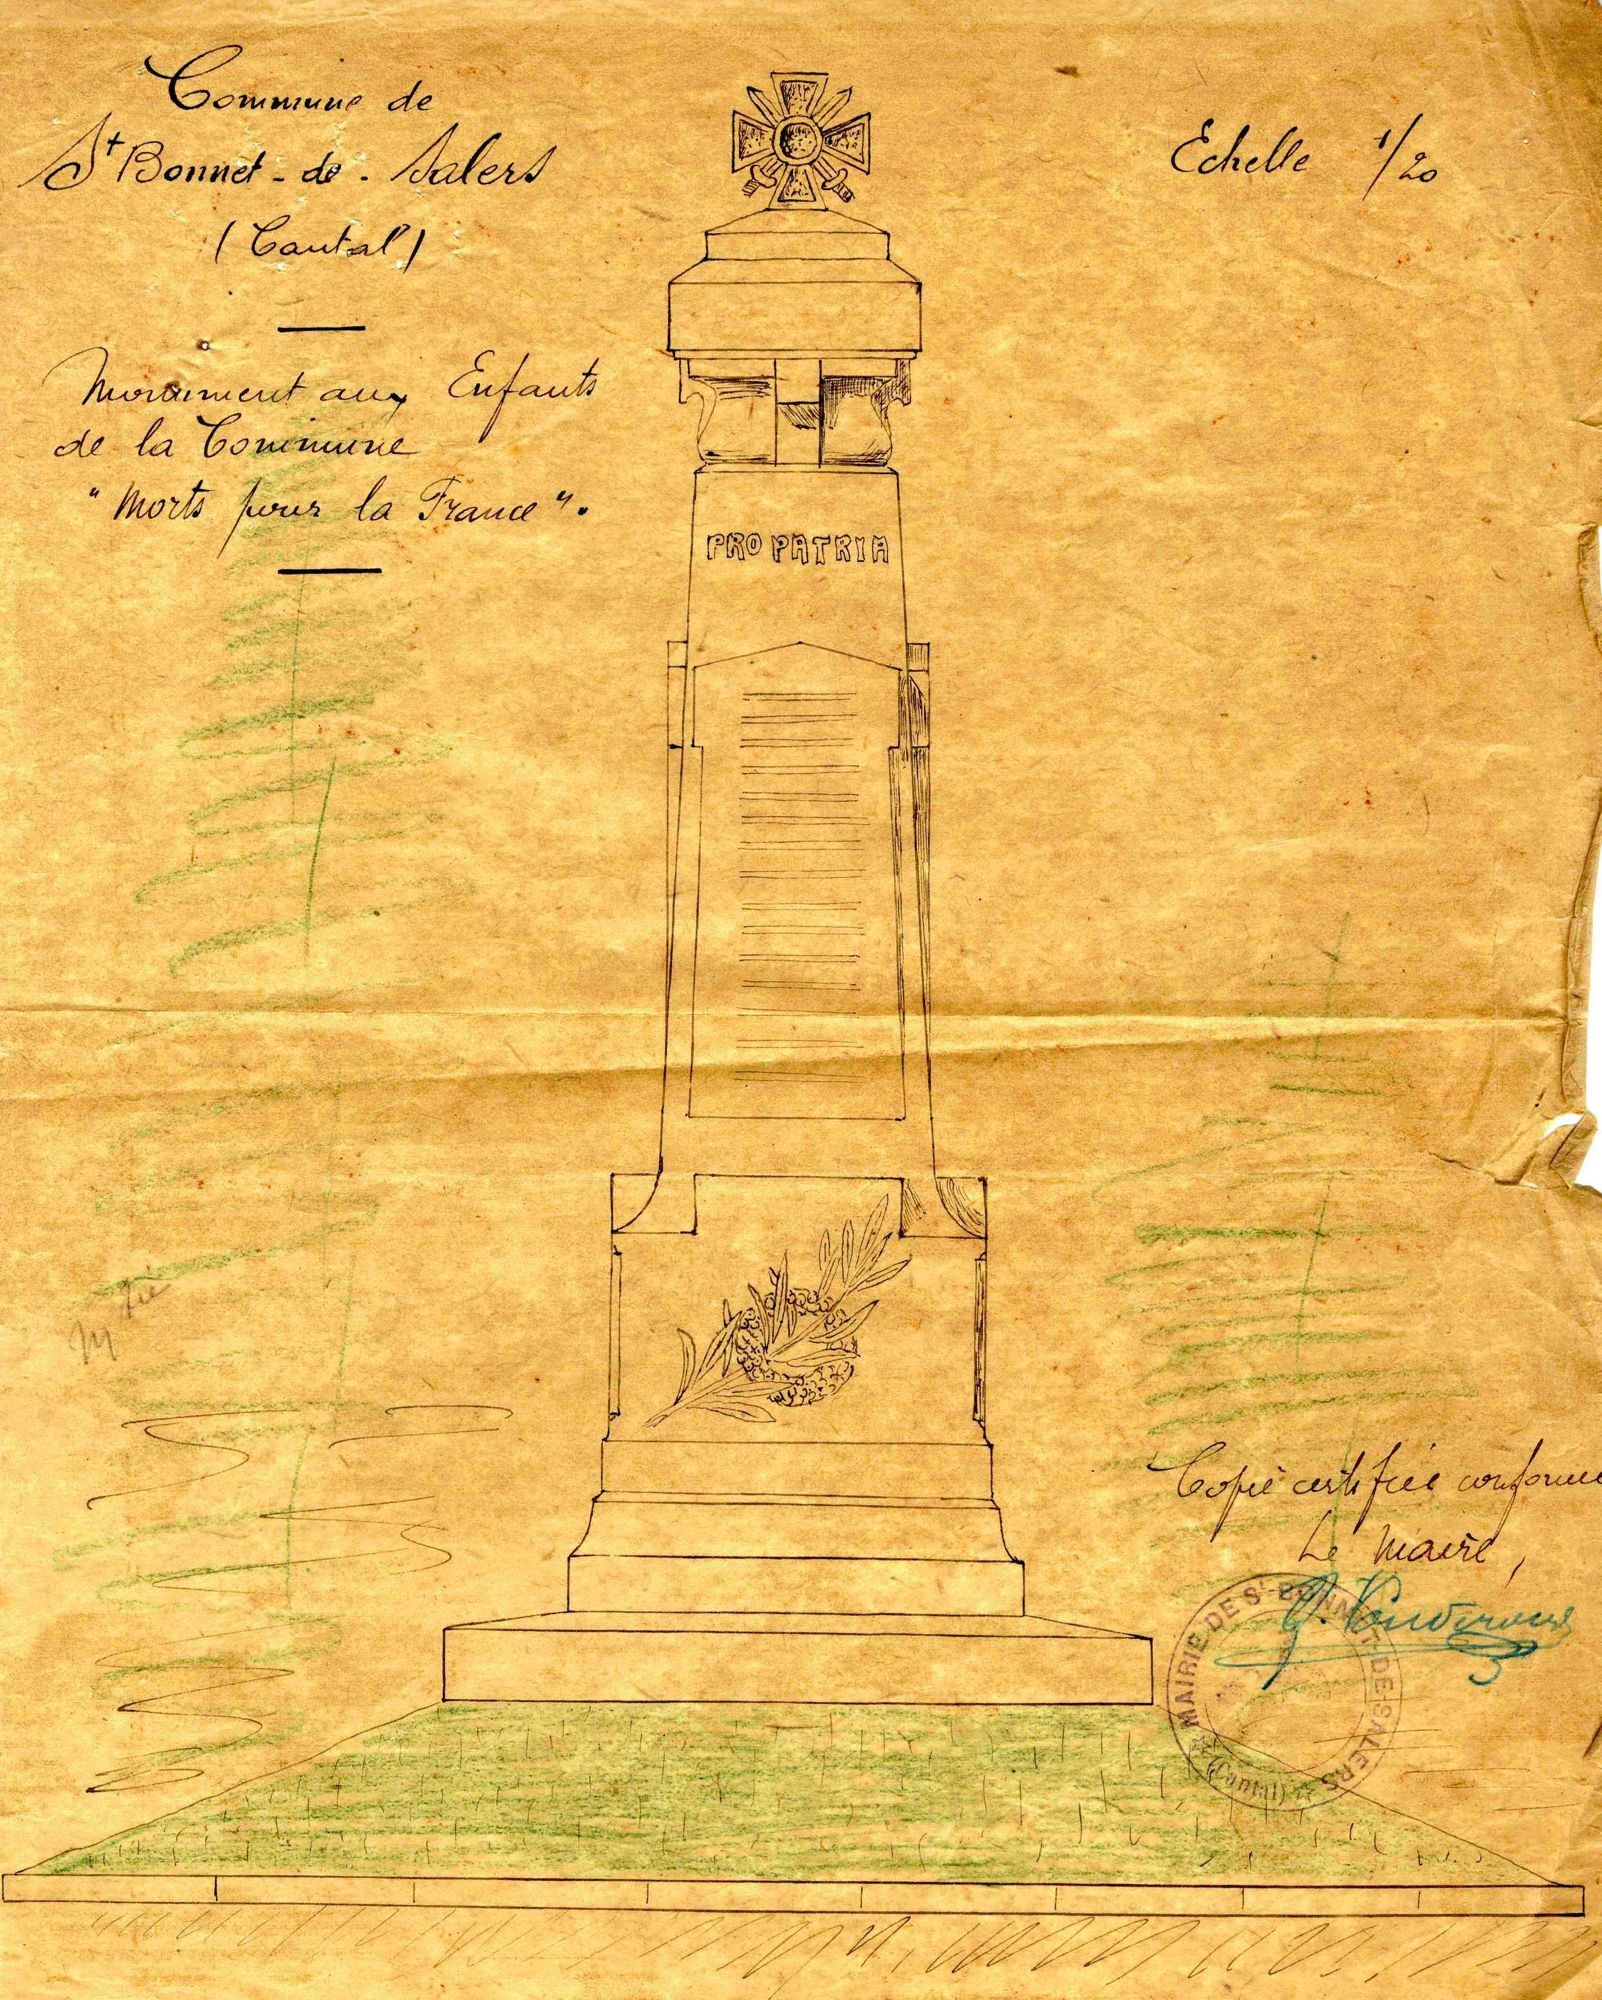 Commune de
St Bonnet-de-Salers
(Cantal)
Monument aux Enfants
de la Commune
"Morts pour la France".
Echelle 1/20
PRO PATRIA
Copie certifiée conforme
Le Maire,
MAIRIE DE St-BONNET-DE-SALERS
(Cantal)